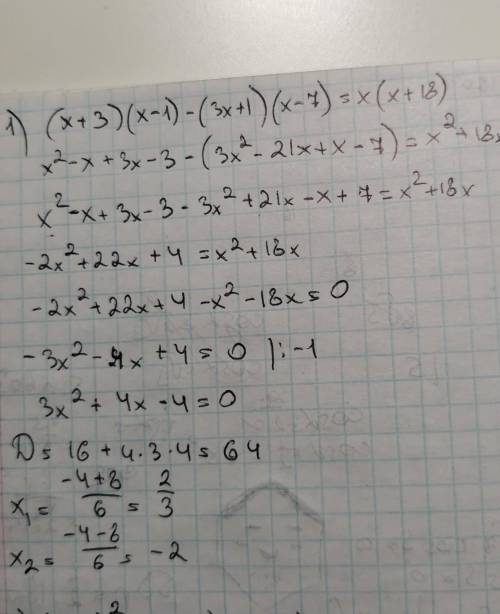 1) (x+3)(x-1)-(3x+1)(x-7)=x(x+18)
x²-x+3x-3-(3x²-21x+x-7)=x²+18x
x²-x+3x-3-3x²+21x-x+7=x²+18x
-2x²+22x+4=x²+18x
-2x²+22x+4-x²-18x=0
-3x²-4x+4=0 |:-1
3x²+4x-4=0
D=16+4·3·4=64
x₁=(-4+8)/6=2/3
x₂=(-4-8)/6=-2